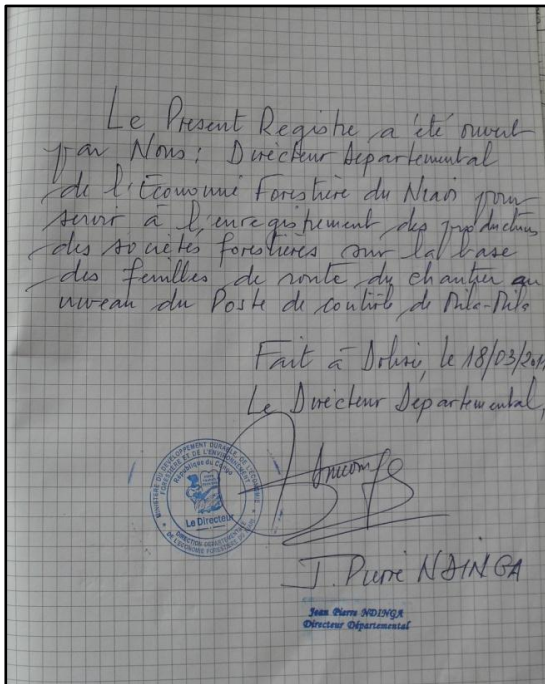 Le Present Registre a été ouvert
par Nous : Directeur Departemental
de l'Economie Forestière du Niari pour
servir à l'enregistrement des productions
des sociétés forestières sur la base
des feuilles de route du chantier au
niveau du Poste de contrôle de Mila-Mila
Fait à Dolisie, le 18/03/201
Le Directeur Départemental,
MINISTERE DU DEVELOPPEMENT DURABLE, DE L'ECONOMIE
FORESTIERE ET DE L'ENVIRONNEMENT
République du Congo
Le Directeur
DIRECTION DEPARTEMENTALE
DE L'ECONOMIE FORESTIERE DU NIARI
J. Pierre NDINGA
Jean Pierre NDINGA
Directeur Départemental